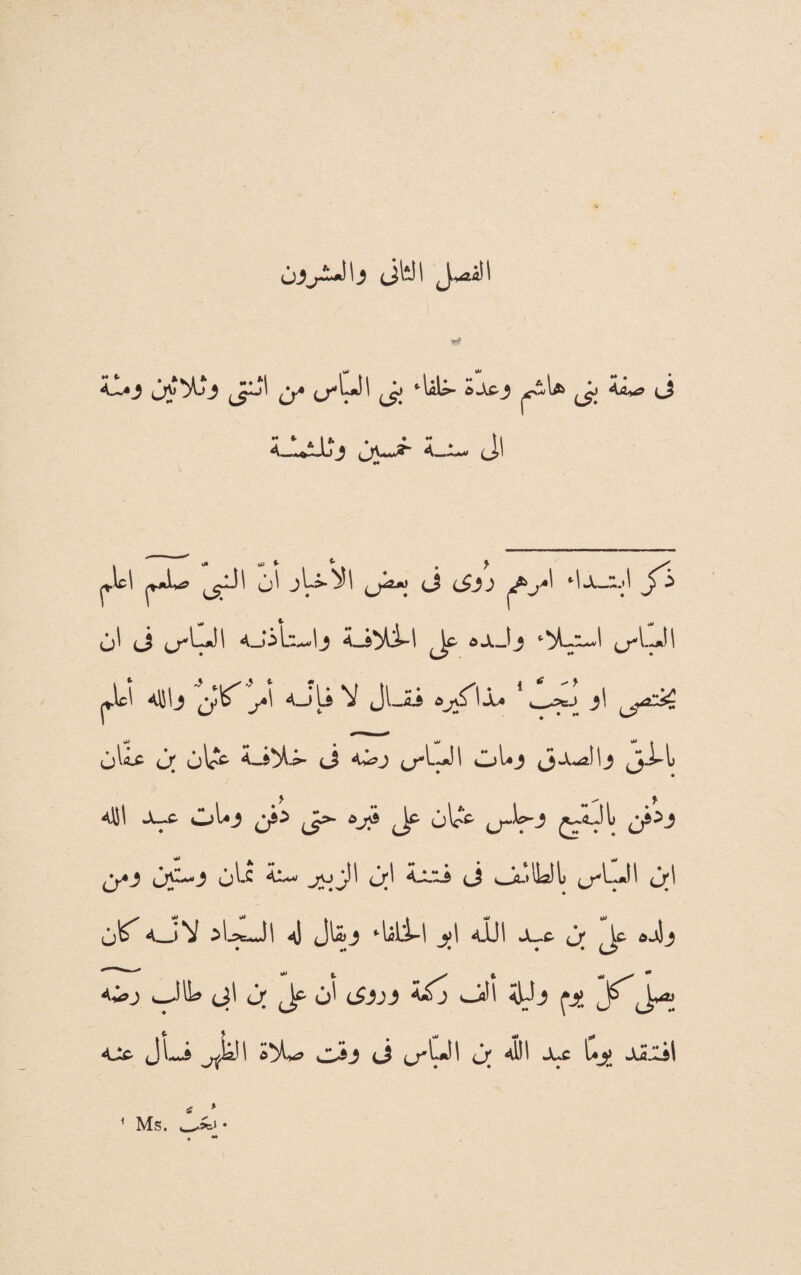 الفصل الثانى والعشرون
فى صفة بنى هاشم وعدّة خلفاء بنى العبّاس من اثنتى وثلاثين ومئة
الى سنة خمسين وثلثمئة
ذكر ابتداء امرهم رُوى فى بعض الأخبار أنّ النبىّ صلعم اعلم
العبّاس استيلاء ولده على الخلافة واستأذنه العبّاس فى ان
يختصى او يُجَبَّ ¹ مذاكيره فقال لا فإنه أمرٌ كائنٌ والله أعلم
بالحقّ والصدق ومات العبّاس رضه فى خلافة عثمان بن عفّان
ودُفن بالبَقيع وجلس عثمان على قبره حتى دُفن ومات عبد الله
ابن العبّاس بالطائف فى فتنة ابن الزبير سنة ثمان وستّين ومن
ولده علىّ بن عبد اللّه ابو الخلفاء ويقال له السجّاد لانّه كان
يصلّى كلّ يوم وليلة ألف ركعة وروى أنّ علىّ بن ابى طالب رضه
افتقد يومًا عبد اللّه بن العبّاس فى وقت صلاة الظُهر فسأل عنه
¹ Ms. يُحَبّ.